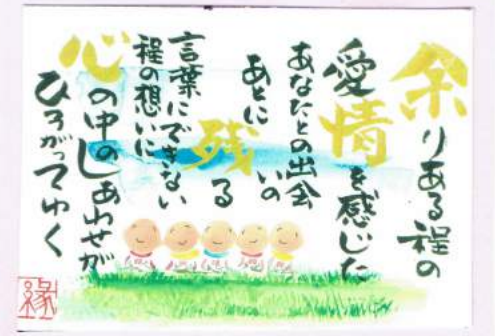 余りある程の
愛情を感じた
あなたとの出会いの
あとに残る
言葉にできない
程の想いに
心の中のしあわせが
ひろがってゆく
縁